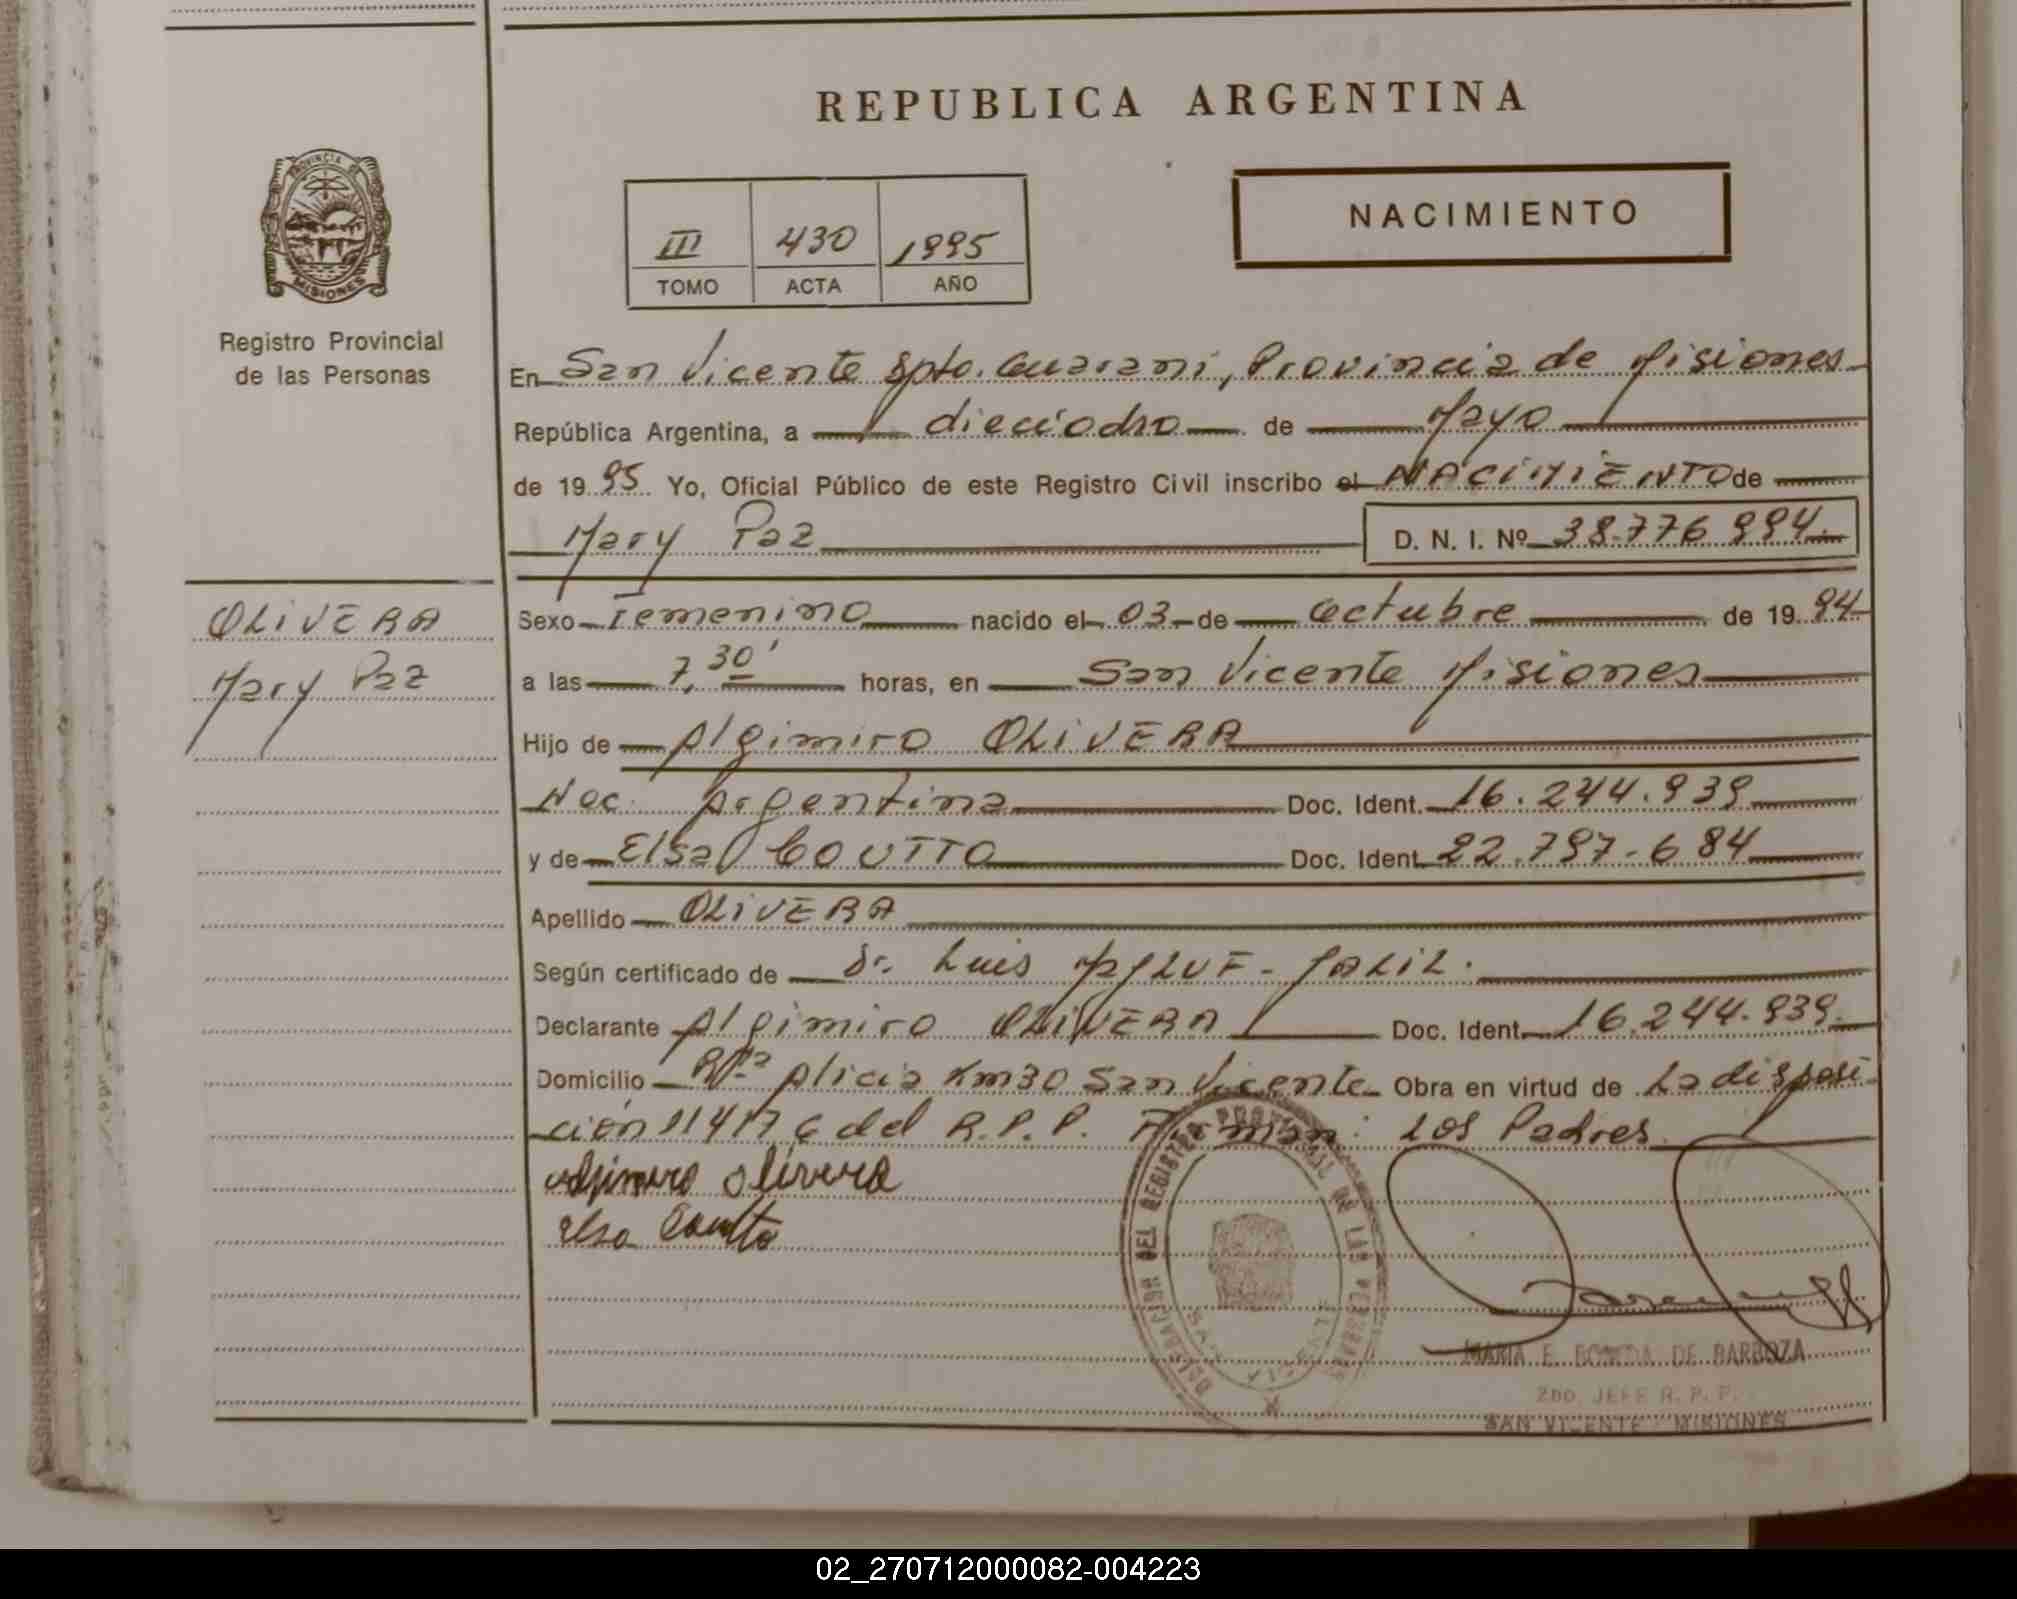 REPUBLICA ARGENTINA
PROVINCIA DE
MISIONES
Registro Provincial
de las Personas
III 430 1995
TOMO ACTA AÑO
NACIMIENTO
En San Vicente Dpto. Guarani, Provincia de Misiones
República Argentina, a dieciocho de Mayo
de 1995 Yo, Oficial Público de este Registro Civil inscribo el NACIMIENTO de
Mary Paz D. N. I. Nº 38.776.994
OLIVERA
Mary Paz
Sexo Femenino nacido el 03 de Octubre de 1994
a las 7,30' horas, en San Vicente Misiones
Hijo de Algimiro OLIVERA
Nac. Argentina Doc. Ident. 16.244.939
y de Elsa COUTTO Doc. Ident. 22.797.684
Apellido OLIVERA
Según certificado de Dr. Luis JALIL.
Declarante Algimiro OLIVERA Doc. Ident. 16.244.939.
Domicilio Rta Alicia Km 30 San Vicente Obra en virtud de La disposi
ción del R.P.P. Firman: Los Padres
Algimiro Olivera
Elsa Coutto
DELEGACION DEL REGISTRO PROVINCIAL DE LAS PERSONAS
MARIA E. DE BARBOZA
2DO JEFE R. P. P.
SAN VICENTE MISIONES
02_270712000082-004223